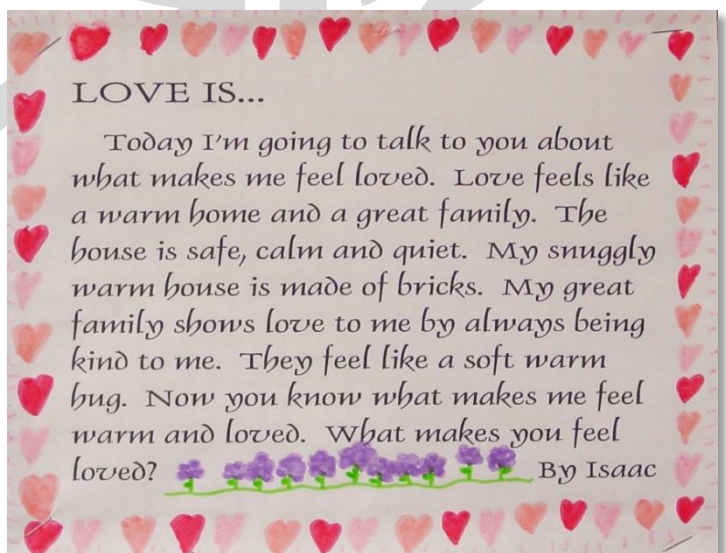 LOVE IS...
Today I'm going to talk to you about
what makes me feel loved. Love feels like
a warm home and a great family. The
house is safe, calm and quiet. My snuggly
warm house is made of bricks. My great
family shows love to me by always being
kind to me. They feel like a soft warm
hug. Now you know what makes me feel
warm and loved. What makes you feel
loved? By Isaac